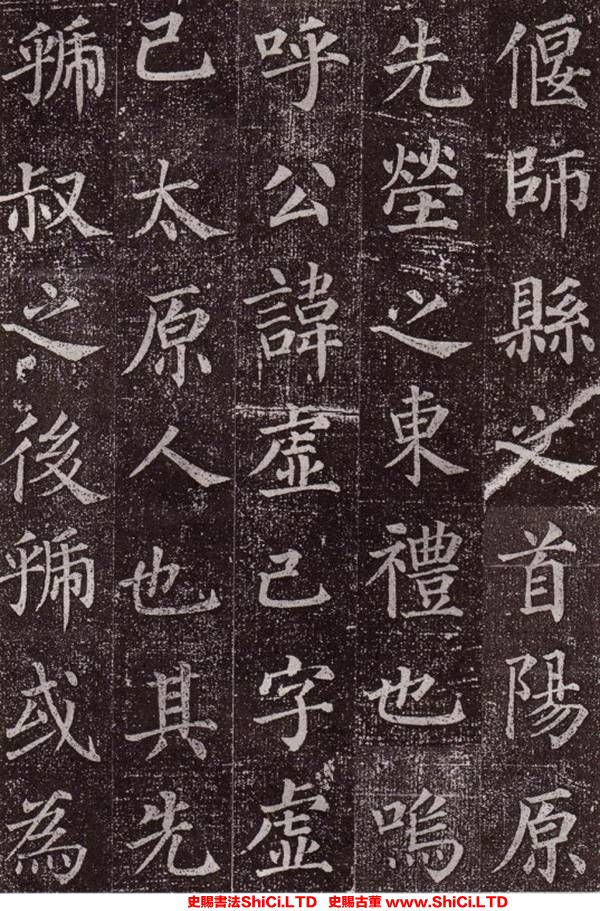 偃師縣之首陽原
先塋之東禮也嗚
呼公諱虛己字虛
己太原人也其先
虢叔之後虢或為
史賜書法ShiCi.LTD 史賜古董 www.ShiCi.LTD